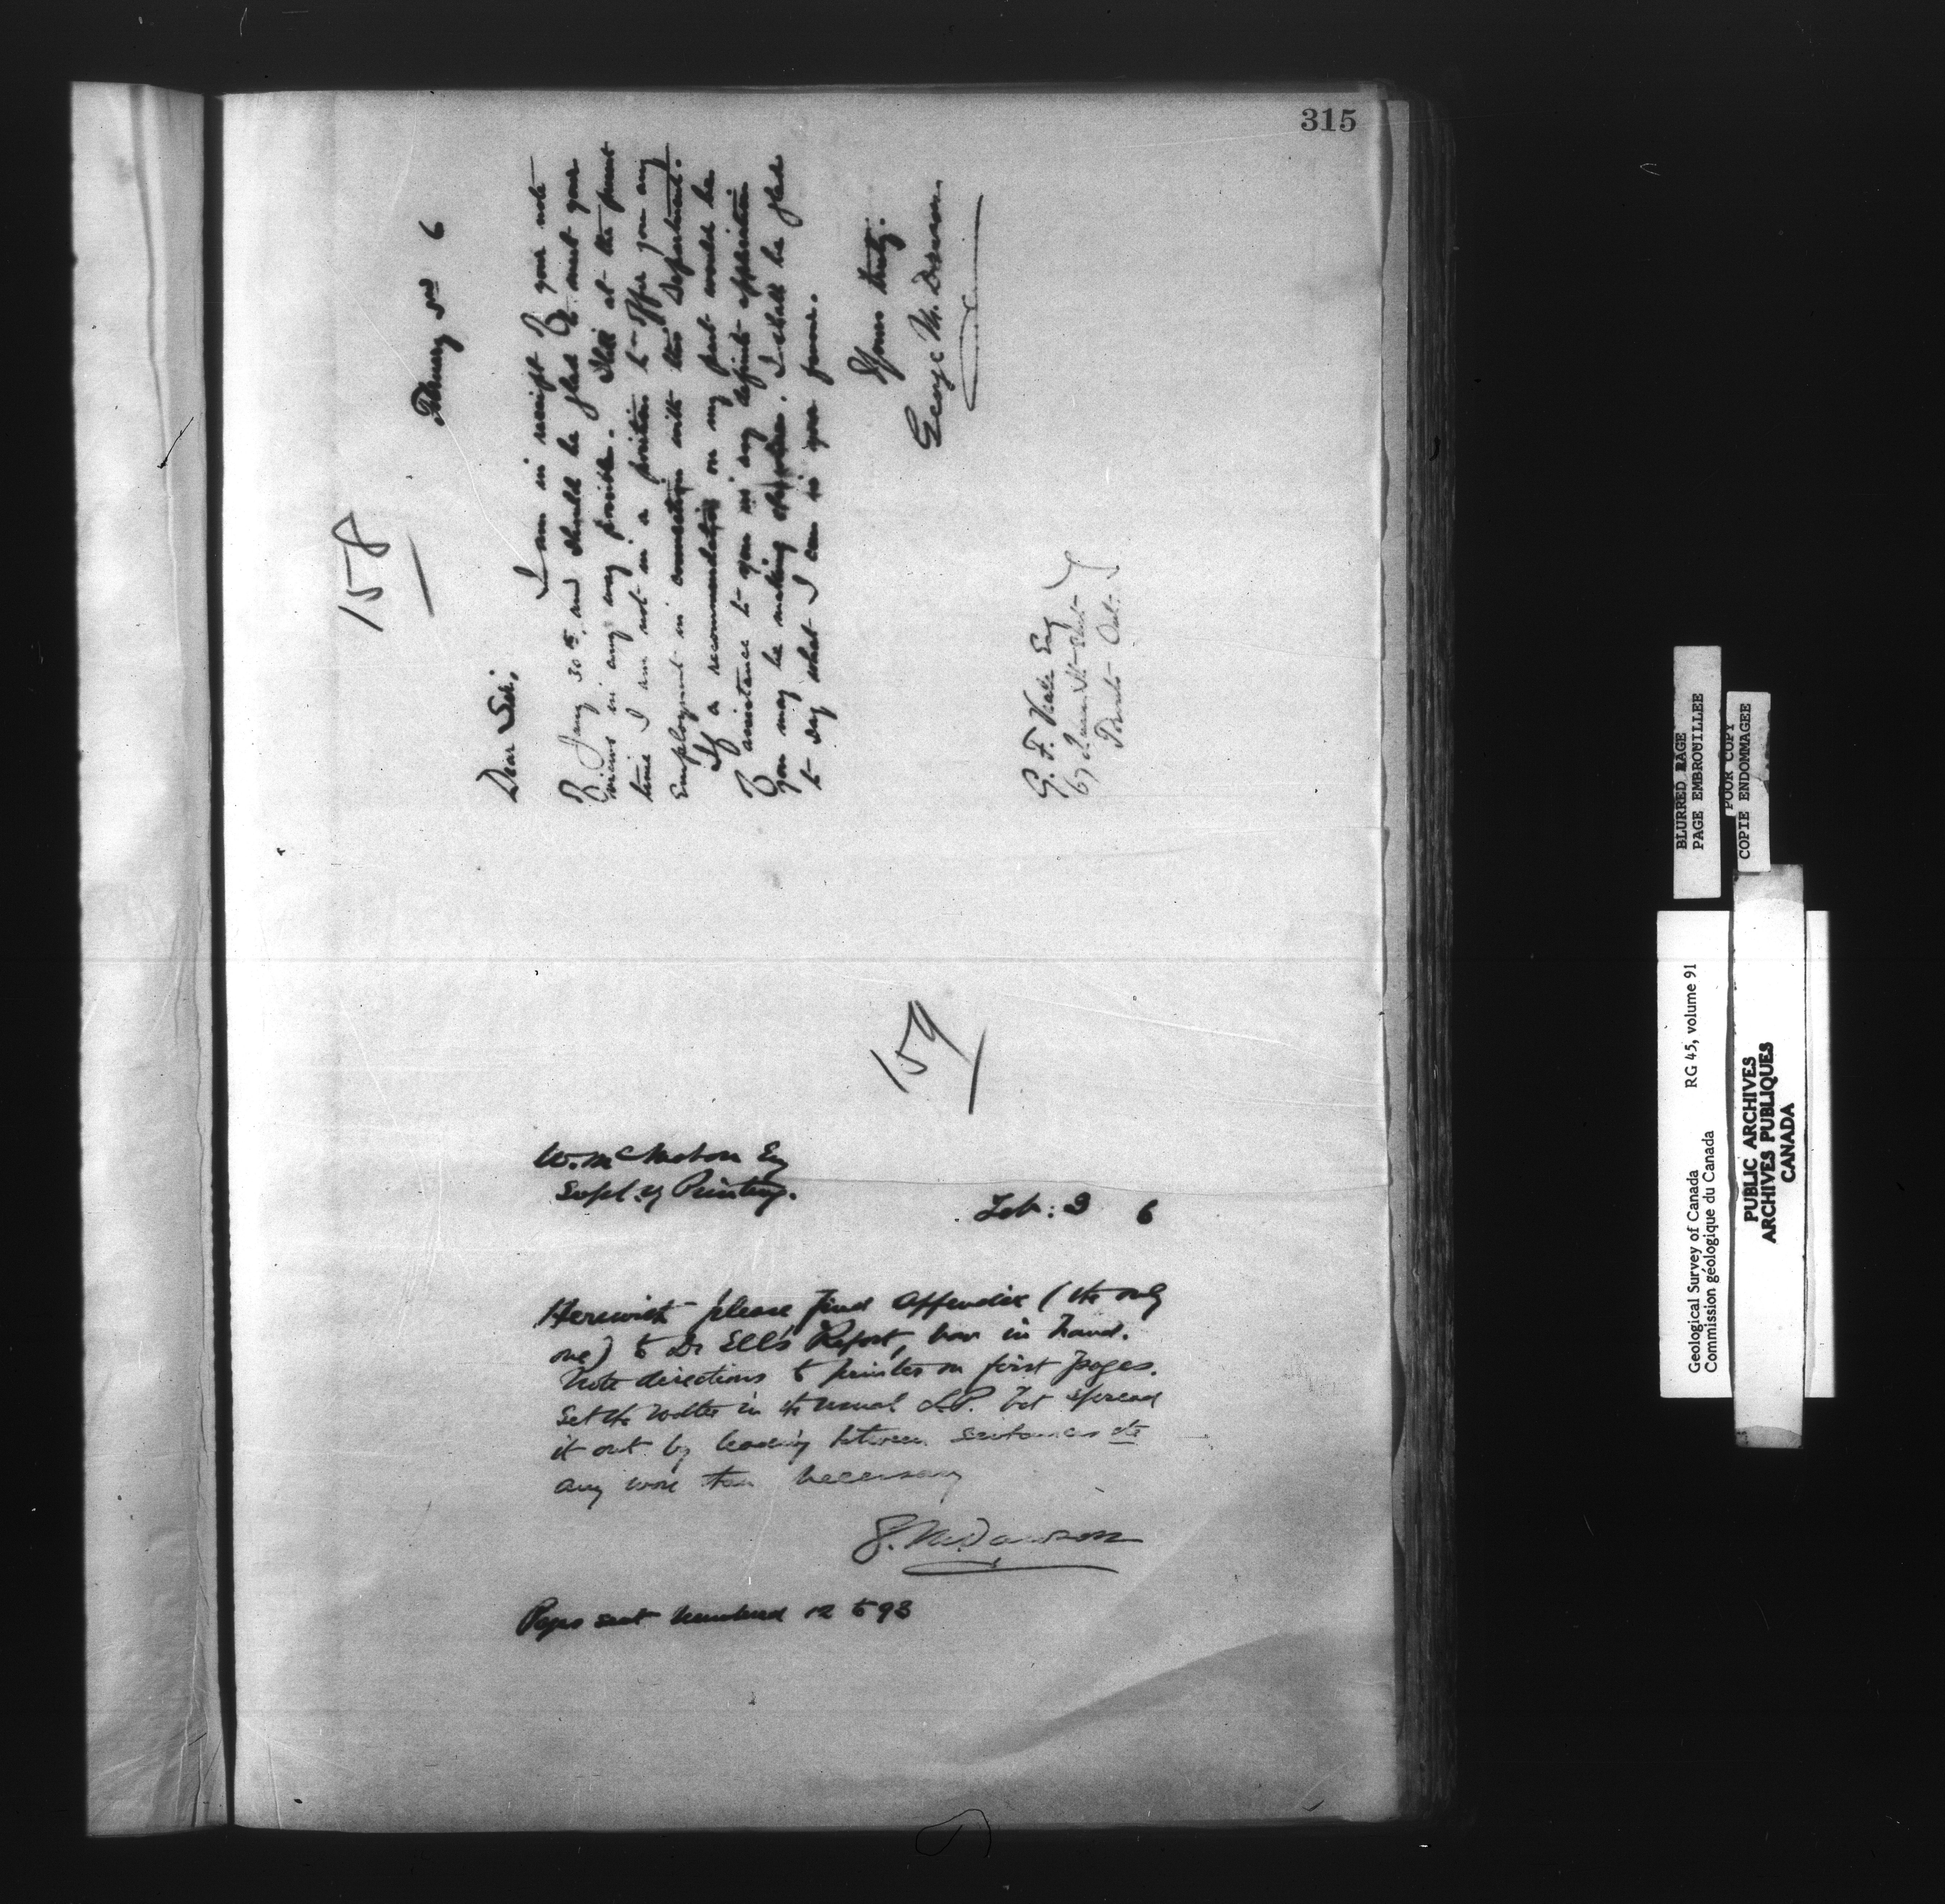 315
158
February 3rd 6
Dear Sir,
I am in receipt of your note
of Jany 30th, and should be glad to meet your
views in any way possible. Still at the present
time I am not in a position to offer you any
employment in connection with this Department.
If a recommendation on my part would be
of assistance to you in any definite application
you may be making elsewhere. I shall be glad
to say what I can in your favour.
Yours truly.
George M. Dawson.
G. F. Esq
67
Toronto Ont.
159
W. McMahon Esq
Supt. of Printing.
Feb: 3 6
Herewith please find Appendix (the only
one) to Dr Ells's Report, now in hand.
Note directions to printer on first pages.
Set the matter in the usual L.P. but spread
it out by leading between sentences etc
any more than necessary
G. M. Dawson
Pages sent numbered 12 to 98
BLURRED PAGE
PAGE EMBROUILLEE
POOR COPY
COPIE ENDOMMAGEE
Geological Survey of Canada RG 45, volume 91
Commission géologique du Canada
PUBLIC ARCHIVES
ARCHIVES PUBLIQUES
CANADA